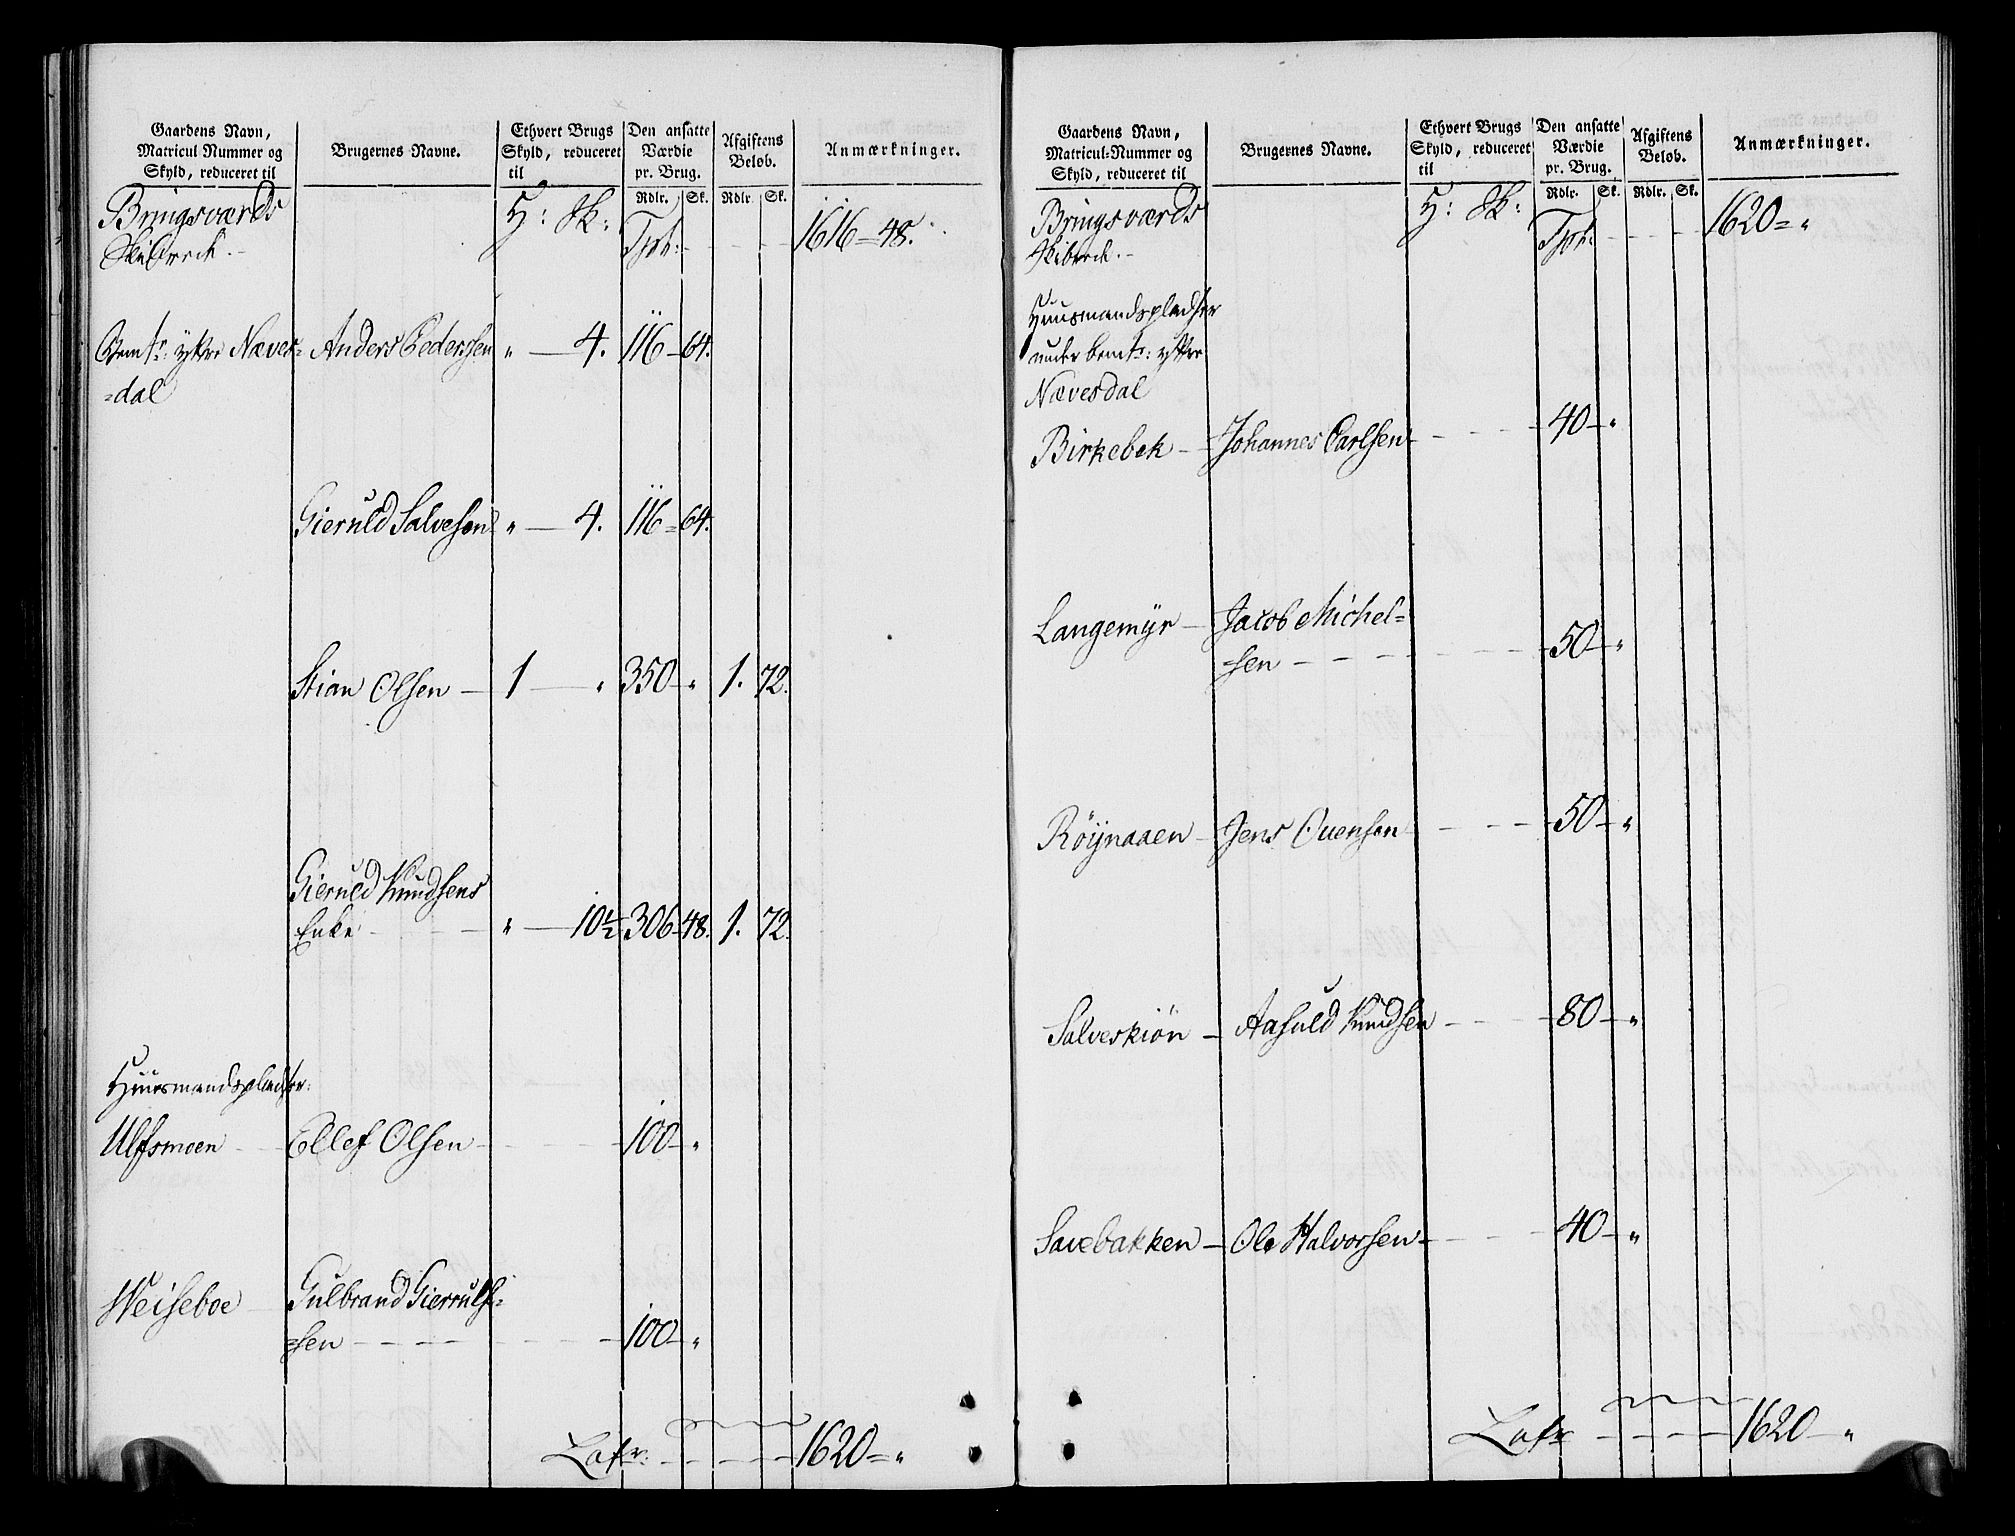 Gaardens Navn,
Matricul Nummer og
Skyld, reduceret til
Brugernes Navne.
Ethvert Brugs
Skyld, reduceret
til
Den ansatte
Værdie
pr. Brug.
Rdlr. Sk.
Afgiftens
Beløb.
Rdlr. Sk.
Anmærkninger.
Bringsværds
Skibrede.
H: Sk:
Tpt: 1616 = 48.
Bemte: ydtre Næves=
=dal
Anders Pedersen " — 4. 116 — 64.
Gieruld Salvesen " — 4. 116 = 64.
Stian Olsen — 1 — " 350 — " 1. 72.
Gieruld Knudsens
Enke " — 10½ 306 — 48. 1. 72.
Huusmandspladser:
Ulfsmoen Ellef Olsen 100 — "
Weiseboe Gulbrand Gierruls=
=sen 100 — "
Latr: 1620 = "
Gaardens Navn,
Matricul-Nummer og
Skyld, reduceret til
Brugernes Navne.
Ethvert Brugs
Skyld, reduceret
til
Den ansatte
Værdie
pr. Brug.
Rdlr. Sk.
Afgiftens
Beløb.
Rdlr. Sk.
Anmærkninger.
Bringsværds
Skibrede.
H: Sk:
Tpt: 1620 = "
Huusmandspladser
under bemte: ydtre
Nævesdal
Birkebek — Johannes Carlsen 40 — "
Langemyr — Jacob Michel=
sen 50 — "
Röijnaaen — Jens Ouensen 50 — "
Salveskiön — Aasuld Knudsen 80 — "
Sauebakken — Ole Halvorsen 40 — "
Latr 1620 — "